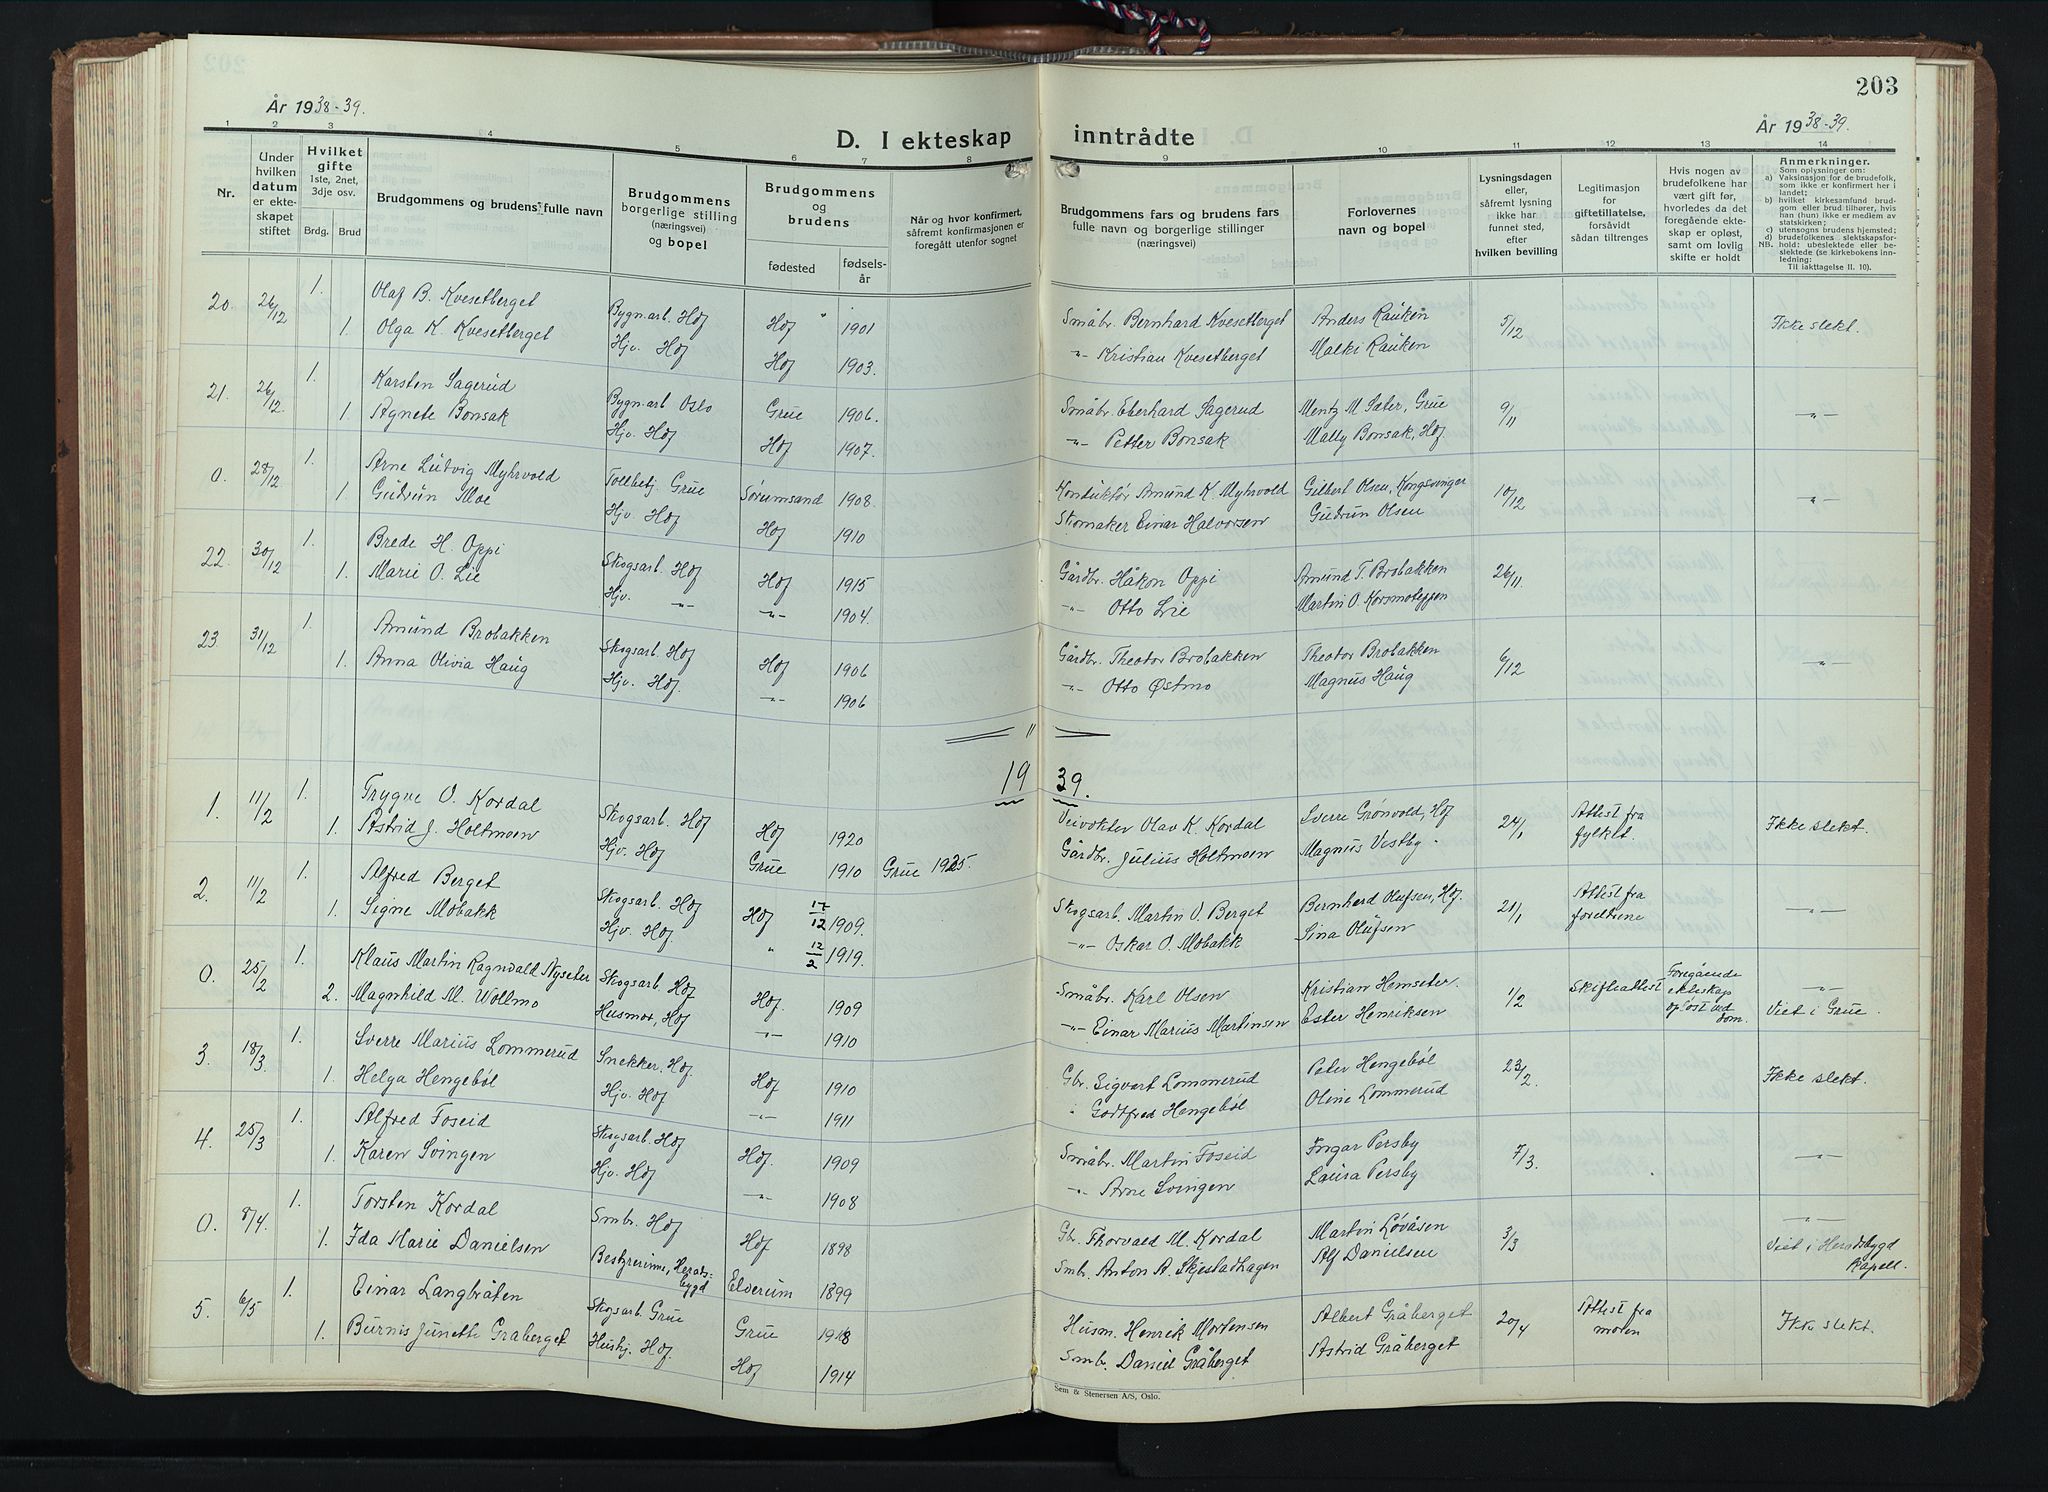 203
År 1938-39.
År 1938-39.
D. I ekteskap inntrådte
1 2 3 4 5 6 7 8 9 10 11 12 13 14
Nr.
Under hvilken datum er ekteskapet stiftet
Hvilket gifte 1ste, 2net, 3dje osv.
Brdg. Brud
Brudgommens og brudens fulle navn
Brudgommens borgerlige stilling (næringsvei) og bopel
Brudgommens og brudens
fødested
fødselsår
Når og hvor konfirmert, såfremt konfirmasjonen er foregått utenfor sognet
Brudgommens fars og brudens fars fulle navn og borgerlige stillinger (næringsvei)
Forlovernes navn og bopel
Lysningsdagen eller, såfremt lysning ikke har funnet sted, efter hvilken bevilling
Legitimasjon for giftetillatelse, forsåvidt sådan tiltrenges
Hvis nogen av brudefolkene har vært gift før, hvorledes da det foregående ekteskap er opløst, samt om lovlig skifte er holdt
Anmerkninger.
Som oplysninger om:
a) Vaksinasjon for de brudefolk, som ikke er konfirmert her i landet;
b) hvilket kirkesamfund brudgom eller brud tilhører, hvis han (hun) ikke er medlem av statskirken;
c) utensogns brudens hjemsted;
d) brudefolkenes slektskapsforhold: ubeslektede eller beslektede (se kirkebokens innledning:
NB. Til iakttagelse II. 10).
20. 26/12 1. Olaf B. Kvesetberget Bygn.arb. Hof Hof 1901 Småbr. Bernhard Kvesetberget Anders Rauken 5/12 Ikke slekt.
1. Olga K. Kvesetberget Hjv. Hof Hof 1903. -"- Kristian Kvesetberget Malki Rauken
21. 26/12. 1. Karsten Sagerud Bygn.arb Oslo Grue 1906. Småbr. Eberhard Sagerud Mentz M Sæter, Grue 9/11 -"-
1. Agnete Bonsak Hjv. Hof Hof 1907. -"- Petter Bonsak Mally Bonsak, Hof
0. 28/12 1. Arne Ludvig Myhrvold Tollbetj. Grue Sørumsand 1908. Konduktør Amund K. Myhrvold Gilbert Olsen, Kongsvinger 10/12 -"-
1. Gudrun Moe Hjv. Hof Hof 1910 Skomaker Einar Halvorsen Gudrun Olsen
22. 30/12 1. Brede H. Oppi Skogsarb. Hof Hof 1915 Gårdbr. Håkon Oppi Amund T. Brobakken 26/11. -"-
1. Marie O. Lie Hjv. -"- -"- 1904. -"- Otto Lie Martin O. Korsmoteppen
23. 31/12 1. Amund Brobakken Skogsarb. Hof Hof 1906 Gårdbr. Theodor Brobakken Theodor Brobakken 6/12 -"-
1. Anna Olivia Haug Hjv. Hof. -"- 1906 -"- Otto Østmo Magnus Haug
1939.
1. 11/2 1. Trygve O. Kordal Skogsarb. Hof Hof 1920 Veivokter Olav K. Kordal Sverre Grønvold, Hof 24/1 Attest fra fylket. Ikke slekt.
1. Astrid J. Holtmoen Hjv. Hof Grue 1910 Grue 1925. Gårdbr. Julius Holtmoen Magnus Vestby.
2. 11/2 1. Alfred Berget Skogsarb. Hof Hof 17/12 1909. Skogsarb. Martin O. Berget Bernhard Olufsen, Hof. 21/1 Attest fra foreldrene -"-
1. Signe Mobakk Hjv. Hof. " 12/2 1919. -"- Oskar O. Mobakk Sina Olufsen
0. 25/2 1. Klaus Martin Ragnvald Nyseter Skogsarb. Hof Hof. 1909 Småbr. Karl Olsen Kristian Hemseter. 1/2 Skifteattest Foregående ekteskap opløst ved dom. -"-
2. Magnhild M. Wollmo Husmor, Hof -"- 1910 -"- Einar Marius Martinsen Ester Henriksen Viet i Grue.
3. 18/3. 1. Sverre Marius Lommerud Snekker, Hof. Hof 1910 Gbr. Sigvart Lommerud Peter Hengebøl 23/2. Ikke slekt.
1. Helga Hengebøl Hjv. Hof -"- 1911 " Godtfred Hengebøl Oline Lommerud
4. 25/3 1. Alfred Foseid Skogsarb. Hof Hof. 1909 Småbr. Martin Foseid Ingar Persby 7/3. -"-
1. Karen Svingen Hjv. Hof -"- 1908 -"- Arne Svingen Laura Persby
0. 8/4. 1. Torsten Kordal Smbr. Hof Hof 1898 Gbr. Thorvald M. Kordal Martin Løvåsen 3/3 -"-
1. Ida Marie Danielsen Bestyrerinne, Heradsbygd Elverum 1899 Smbr. Anton A. Skjestadhagen Alf Danielsen Viet i Heradsbygd kapell.
5. 6/5 1. Einar Langbråten Skogsarb. Grue Grue 1918 Husm. Henrik Mortensen Albert Gråberget 20/4 Attest fra moren Ikke slekt.
1. Burnis Junette Gråberget Hushj. Hof. Hof 1914 Smbr. Daniel Gråberget Astrid Gråberget
Sem & Stenersen A/S, Oslo.